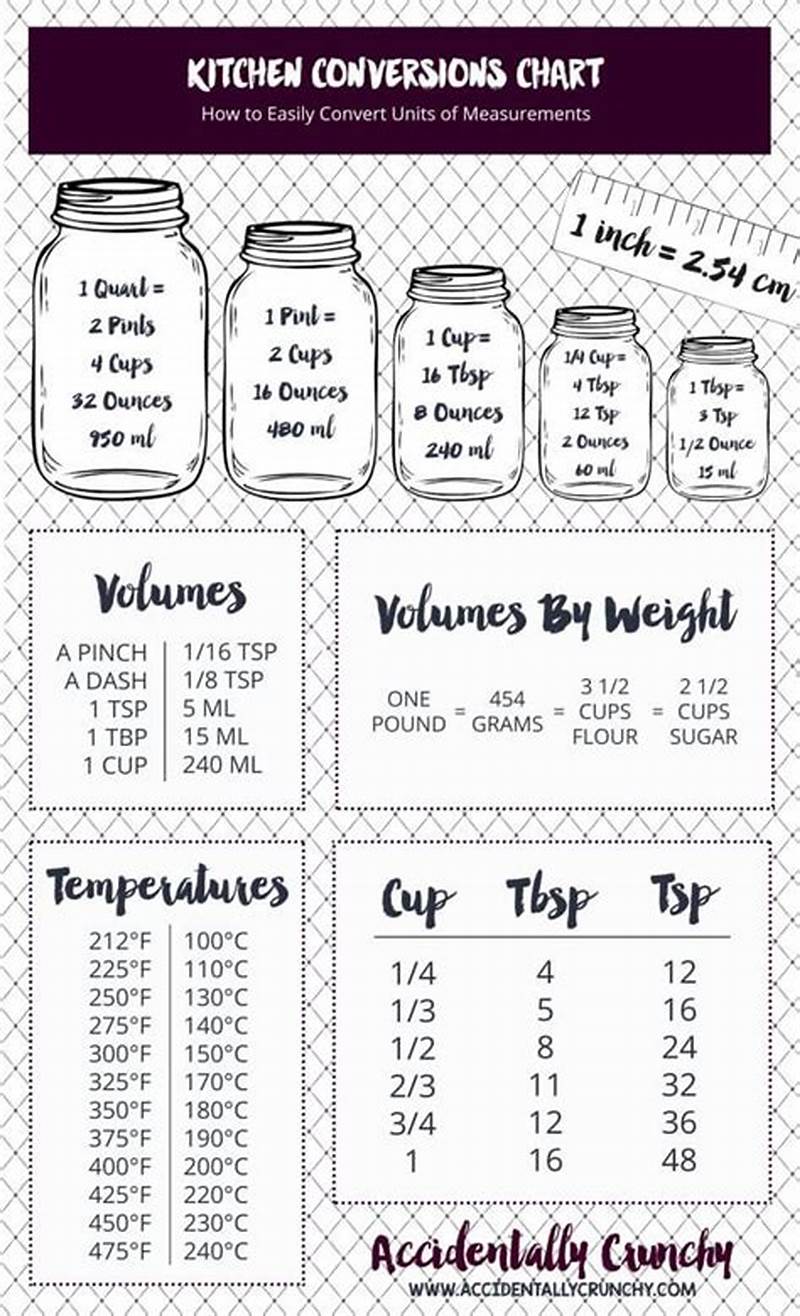 KITCHEN CONVERSIONS CHART
How to Easily Convert Units of Measurements
1 inch = 2.54 cm
1 Quart =
2 Pints
4 Cups
32 Ounces
950 ml
1 Pint =
2 Cups
16 Ounces
480 ml
1 Cup=
16 Tbsp
8 Ounces
240 ml
1/4 Cup=
4 Tbsp
12 Tsp
2 Ounces
60 ml
1 Tbsp=
3 Tsp
1/2 Ounce
15 ml
Volumes
A PINCH 1/16 TSP
A DASH 1/8 TSP
1 TSP 5 ML
1 TBP 15 ML
1 CUP 240 ML
Volumes By Weight
ONE POUND = 454 GRAMS = 3 1/2 CUPS FLOUR = 2 1/2 CUPS SUGAR
Temperatures
212°F 100°C
225°F 110°C
250°F 130°C
275°F 140°C
300°F 150°C
325°F 170°C
350°F 180°C
375°F 190°C
400°F 200°C
425°F 220°C
450°F 230°C
475°F 240°C
Cup Tbsp Tsp
1/4 4 12
1/3 5 16
1/2 8 24
2/3 11 32
3/4 12 36
1 16 48
Accidentally Crunchy
WWW.ACCIDENTALLYCRUNCHY.COM